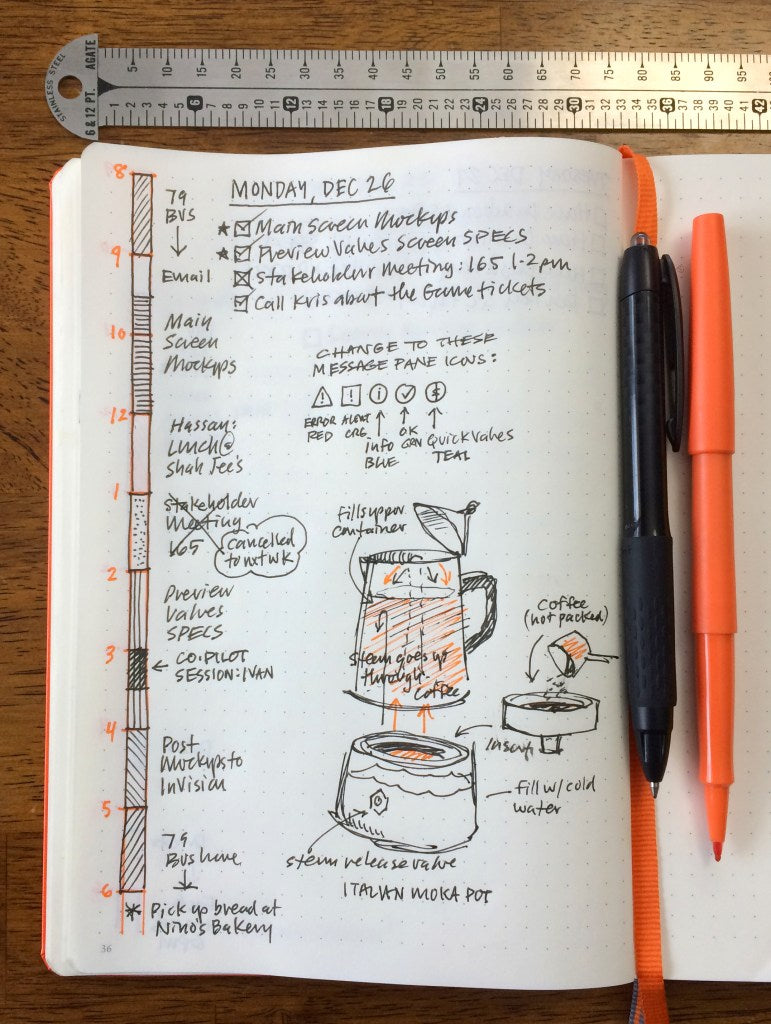 STAINLESS STEEL
AGATE
6 & 12 PT.
5 10 15 20 25 30 35 40 45 50 55 60 65 70 75 80 85 90 95
1 2 3 4 5 6 7 8 9 10 11 12 13 14 15 16 17 18 19 20 21 22 23 24 25 26 27 28 29 30 31 32 33 34 35 36 37 38 39 40 41 42
MONDAY, DEC 26
★ Main Screen Mockups
★ Preview Valves Screen SPECS
Stakeholder meeting: 165 1-2 pm
Call Kris about the Game tickets
8
79
BUS
9
Email
10
Main
Screen
Mockups
12
Hassan:
Lunch @
Shah Jee's
1
Stakeholder
Meeting
165
Cancelled
to nxt wk
2
Preview
Valves
SPECS
3
CO-PILOT
SESSION: IVAN
4
Post
Mockups to
InVision
5
79
Bus home
6
* Pick up bread at
Nino's Bakery
36
CHANGE TO THESE
MESSAGE PANE ICONS:
ERROR
RED
ALERT
ORG
info
BLUE
OK
GRN
Quick Valves
TEAL
fills upper
container
steam goes up
through
coffee
Coffee
(not packed)
Insert
fill w/ cold
water
steam release valve
ITALIAN MOKA POT